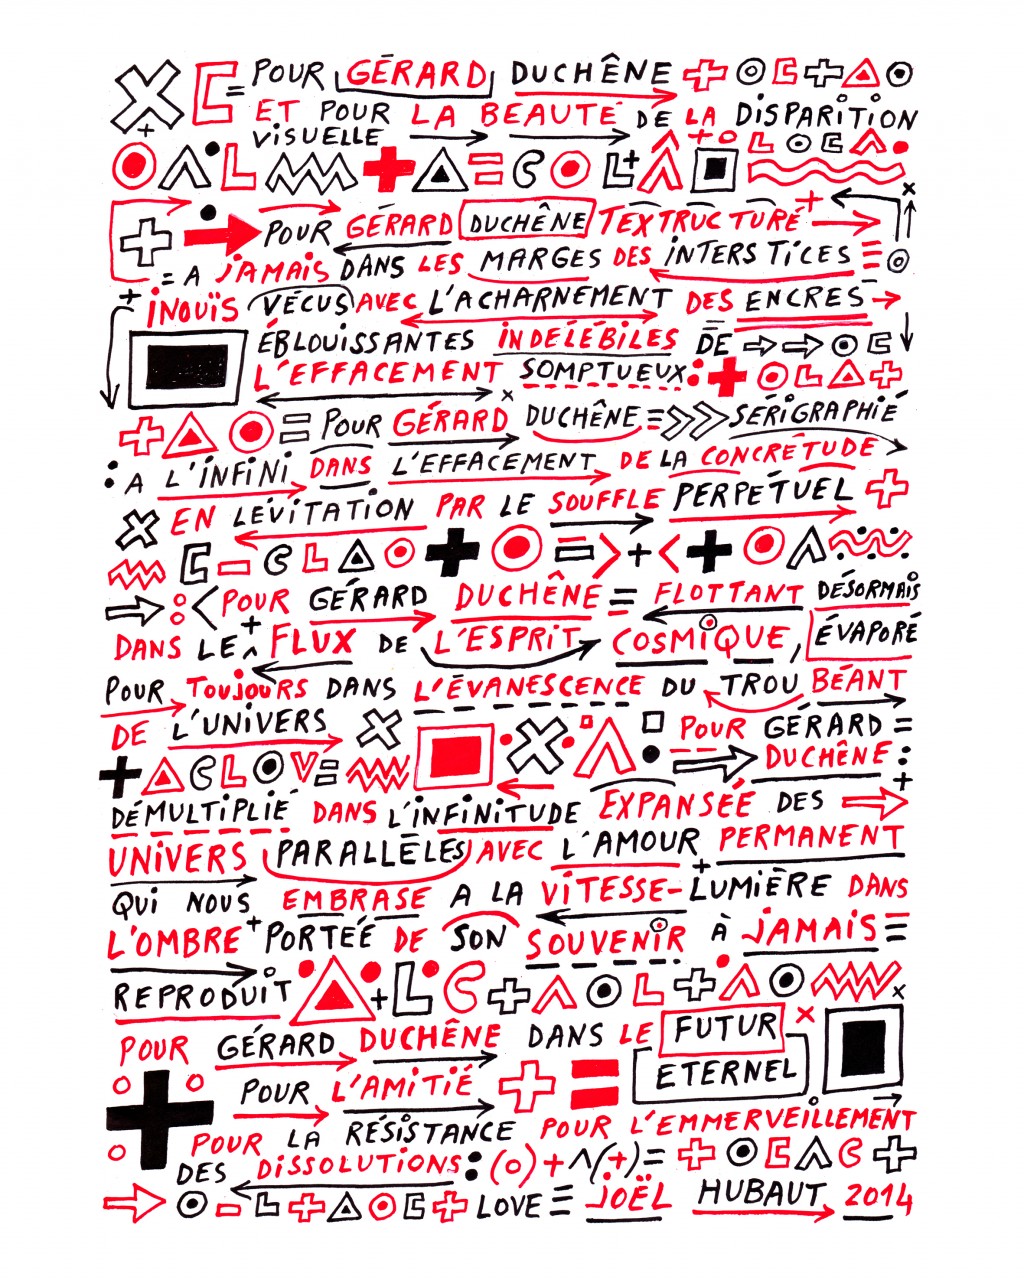 POUR GÉRARD DUCHÊNE
ET POUR LA BEAUTÉ DE LA DISPARITION
VISUELLE
POUR GÉRARD DUCHÊNE TEXTRUCTURÉ
= A JAMAIS DANS LES MARGES DES INTERSTICES
INOUÏS VÉCUS AVEC L'ACHARNEMENT DES ENCRES
ÉBLOUISSANTES INDÉLÉBILES DE
L'EFFACEMENT SOMPTUEUX:
POUR GÉRARD DUCHÊNE = SÉRIGRAPHIÉ
: A L'INFINI DANS L'EFFACEMENT DE LA CONCRÉTUDE
EN LÉVITATION PAR LE SOUFFLE PERPÉTUEL
POUR GÉRARD DUCHÊNE = FLOTTANT DÉSORMAIS
DANS LE FLUX DE L'ESPRIT COSMIQUE, ÉVAPORÉ
POUR TOUJOURS DANS L'ÉVANESCENCE DU TROU BÉANT
DE L'UNIVERS POUR GÉRARD =
DUCHÊNE:
DÉMULTIPLIÉ DANS L'INFINITUDE EXPANSÉE DES
UNIVERS PARALLÈLES AVEC L'AMOUR PERMANENT
QUI NOUS EMBRASE A LA VITESSE-LUMIÈRE DANS
L'OMBRE PORTÉE DE SON SOUVENIR À JAMAIS =
REPRODUIT
POUR GÉRARD DUCHÊNE DANS LE FUTUR
POUR L'AMITIÉ ETERNEL
POUR LA RÉSISTANCE POUR L'EMMERVEILLEMENT
DES DISSOLUTIONS:
LOVE = JOËL HUBAUT 2014